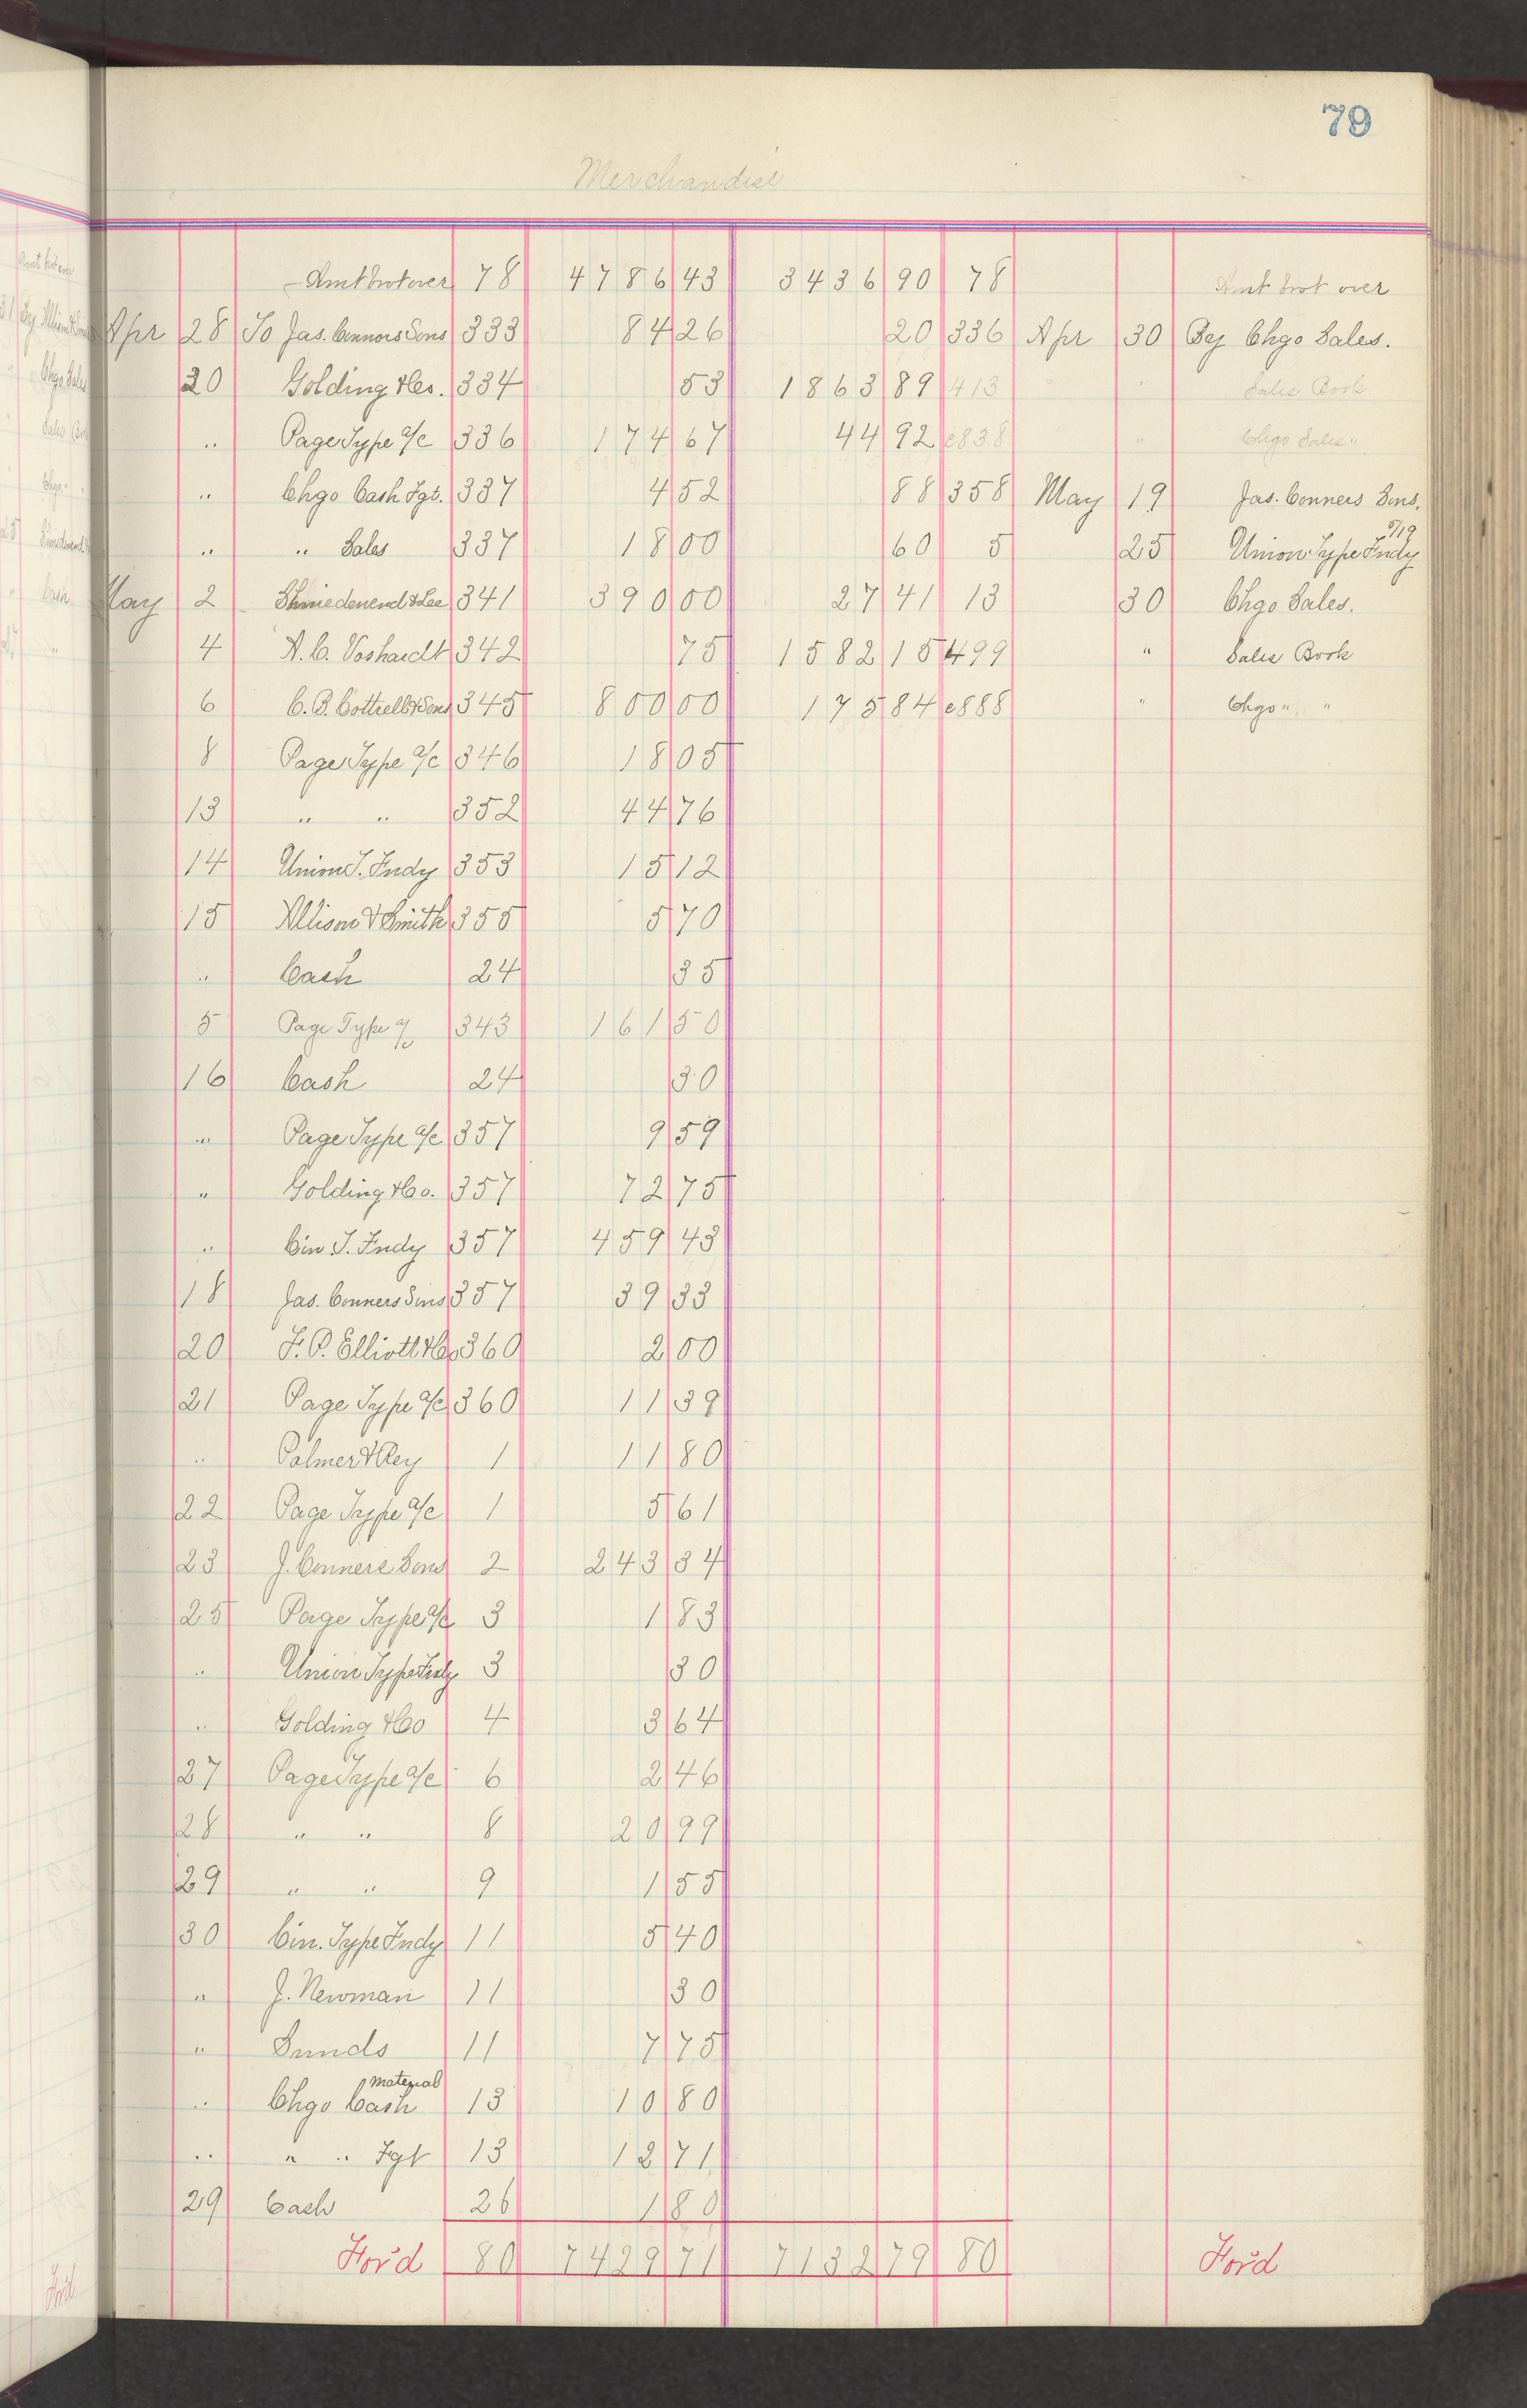 79
Merchandise
Amt brot over 78 4786 43 3436 90 78 Amt brot over
Apr 28 To Jas. Conners Sons 333 84 26 20 336 Apr 30 By Chgo Sales.
20 Golding & Co. 334 53 1863 89 413 " " Sales Book
" Page Type a/c 336 174 67 44 92 c838 " Chgo Sales "
" Chgo Cash Fgt. 337 4 52 88 358 May 19 Jas. Conners Sons.
" " Sales 337 18 00 60 5 25 Union Type Fndy 5/19
May 2 Shniedenend & Lee 341 390 00 27 41 13 30 Chgo Sales.
4 A. C. Voshardt 342 75 1582 15 499 " Sales Book
6 C. B. Cottrell & Sons 345 800 00 175 84 c888 " Chgo " "
8 Page Type a/c 346 18 05
13 " " 352 44 76
14 Union T. Fndy 353 15 12
15 Allison & Smith 355 5 70
" Cash 24 35
5 Page Type a/c 343 161 50
16 Cash 24 30
" Page Type a/c 357 9 59
" Golding & Co. 357 72 75
" Cin T. Fndy 357 459 43
18 Jas. Conners Sons 357 39 33
20 F. P. Elliott & Co 360 2 00
21 Page Type a/c 360 11 39
" Palmer & Rey 1 11 80
22 Page Type a/c 1 5 61
23 J. Conners Sons 2 243 34
25 Page Type a/c 3 1 83
" Union Type Fndy 3 30
" Golding & Co 4 3 64
27 Page Type a/c 6 2 46
28 " " 8 20 99
29 " " 9 1 55
30 Cin. Type Fndy 11 5 40
" J. Newman 11 30
" Sunds 11 7 75
" Chgo Cash material 13 10 80
" " " Fgt 13 12 71
29 Cash 26 1 80
For'd 80 7429 71 7132 79 80 For'd